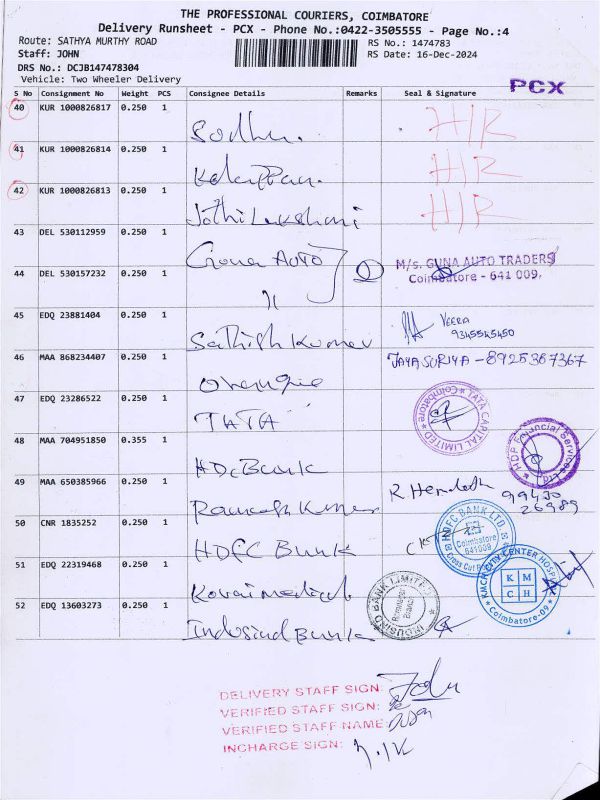 THE PROFESSIONAL COURIERS, COIMBATORE
Delivery Runsheet - PCX - Phone No.:0422-3505555 - Page No.:4
Route: SATHYA MURTHY ROAD
RS No.: 1474783
Staff: JOHN
RS Date: 16-Dec-2024
DRS No.: DCJB147478304
Vehicle: Two Wheeler Delivery
PCX
S No Consignment No Weight PCS Consignee Details Remarks Seal & Signature
40 KUR 1000826817 0.250 1 H/R
41 KUR 1000826814 0.250 1 H/R
42 KUR 1000826813 0.250 1 Jothi Lakshmi H/R
43 DEL 530112959 0.250 1 Guna AUTO M/s. GUNA AUTO TRADERS
Coimbatore - 641 009.
44 DEL 530157232 0.250 1 "
45 EDQ 23881404 0.250 1 Sathish Kumar VEERA
9345545450
46 MAA 868234407 0.250 1 JAYASURIYA - 8925367367
47 EDQ 23286522 0.250 1 TATA TATA CAPITAL LIMITED * Coimbatore *
48 MAA 704951850 0.355 1 HDFC Bank HDP Financial Service
49 MAA 650385966 0.250 1 Ramesh Kumar 99430
26989
50 CNR 1835252 0.250 1 HDFC Bank HDFC BANK LTD.
Coimbatore
641009
Cross Cut R
51 EDQ 22319468 0.250 1 Kovai medical KMCH CITY CENTER HOSPITAL
K M
C H
Coimbatore-09
52 EDQ 13603273 0.250 1 Indusind Bank INDUSIND BANK LIMITED
DELIVERY STAFF SIGN:
VERIFIED STAFF SIGN:
VERIFIED STAFF NAME:
INCHARGE SIGN: